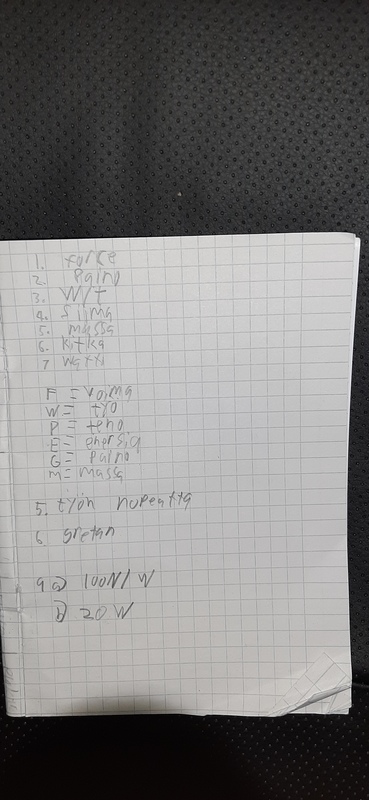 1. force
2. Paino
3. W/t
4. siima
5. massa
6. kitka
7 Watti
F = voima
W = tyo
P = teho
E = energia
G = Paino
m = massa
5. työn nopeatta
6. gretan
9 a) 100N/W
b) 20 W